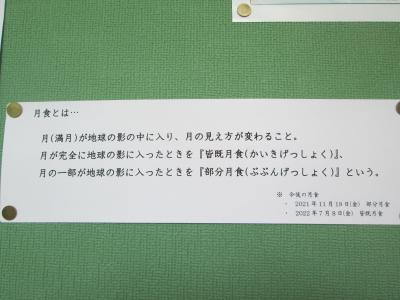 月食とは…
月(満月)が地球の影の中に入り、月の見え方が変わること。
月が完全に地球の影に入ったときを『皆既月食(かいきげっしょく)』、
月の一部が地球の影に入ったときを『部分月食(ぶぶんげっしょく)』という。
※ 今後の月食
・ 2021年11月19日(金) 部分月食
・ 2022年7月8日(金) 皆既月食